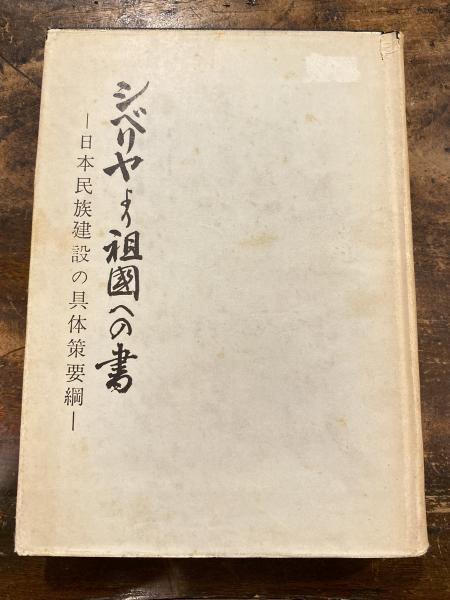 シベリヤより祖國への書
―日本民族建設の具体策要綱―